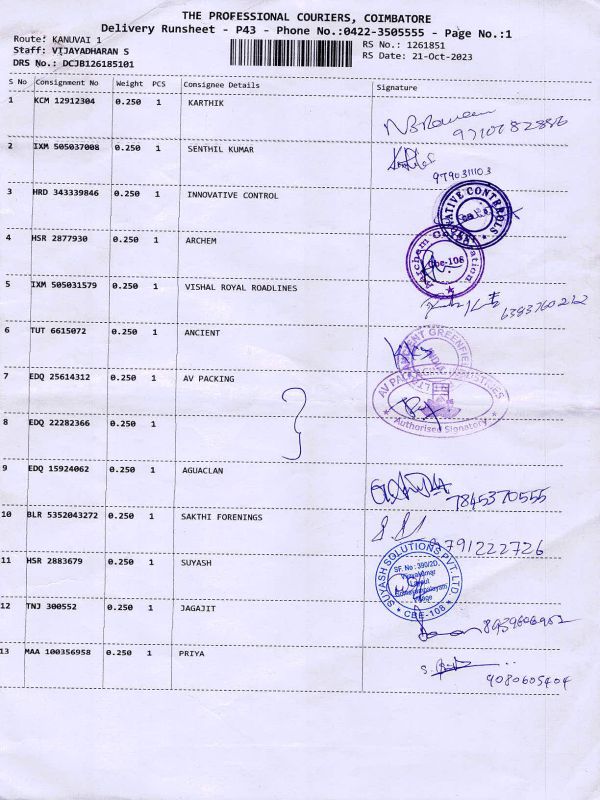 THE PROFESSIONAL COURIERS, COIMBATORE
Delivery Runsheet - P43 - Phone No.:0422-3505555 - Page No.:1
Route: KANUVAI 1
RS No.: 1261851
Staff: VIJAYADHARAN S
RS Date: 21-Oct-2023
DRS No.: DCJB126185101
S No Consignment No Weight PCS Consignee Details Signature
1 KCM 12912304 0.250 1 KARTHIK
9710782886
2 IXM 505037008 0.250 1 SENTHIL KUMAR
9790311103
3 HRD 343339846 0.250 1 INNOVATIVE CONTROL
4 HSR 2877930 0.250 1 ARCHEM
Cbe-108
5 IXM 505031579 0.250 1 VISHAL ROYAL ROADLINES
6383760212
6 TUT 6615072 0.250 1 ANCIENT
ANCIENT GREENFIE
7 EDQ 25614312 0.250 1 AV PACKING
AV PACKAGING INDUSTRIES
Authorised Signatory
8 EDQ 22282366 0.250 1
?
9 EDQ 15924062 0.250 1 AGUACLAN
7845370555
10 BLR 5352043272 0.250 1 SAKTHI FORENINGS
9791222726
11 HSR 2883679 0.250 1 SUYASH
SUYASH SOLUTIONS PVT. LTD
SF. No : 390/2D,
Village
CBE-108
12 TNJ 300552 0.250 1 JAGAJIT
8939606952
13 MAA 100356958 0.250 1 PRIYA
9080605404